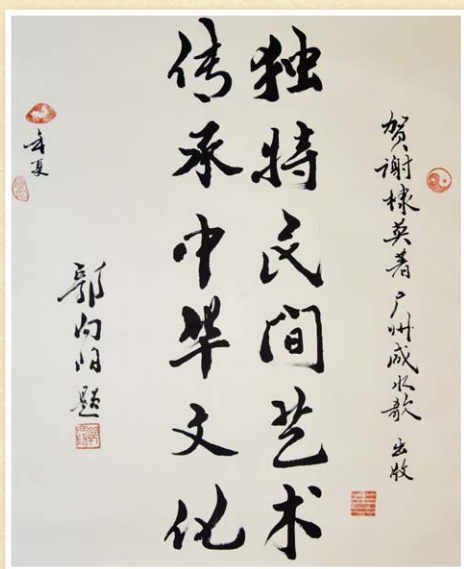 贺谢棣英著广州咸水歌出版
独特民间艺术
传承中华文化
年夏
郭向阳题